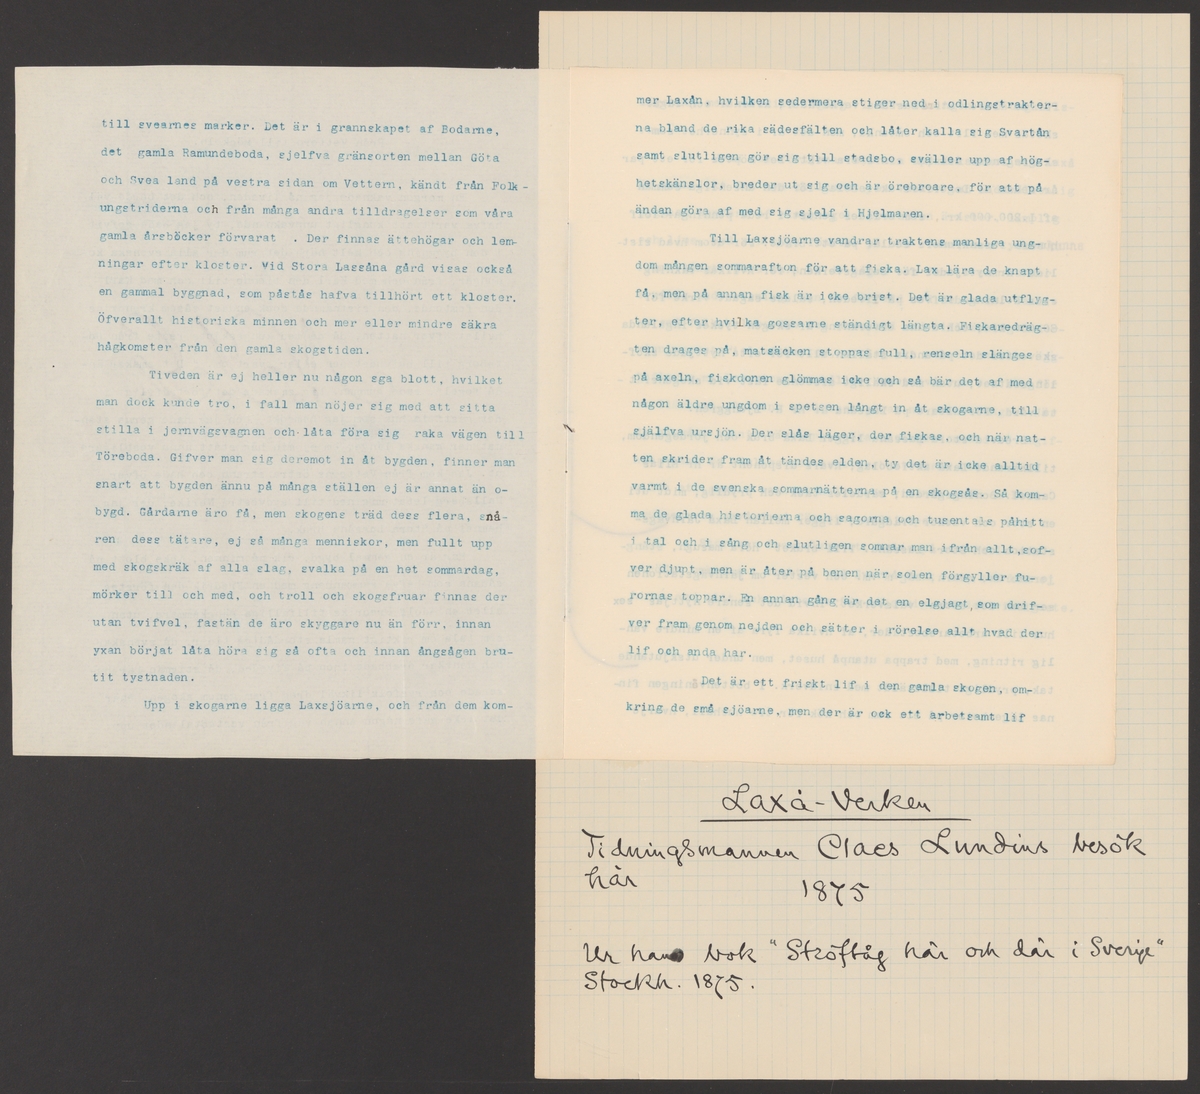 till svearnes marker. Det är i grannskapet af Bodarne,
det gamla Ramundeboda, sjelfva gränsorten mellan Göta
och Svea land på vestra sidan om Vettern, kändt från Folk-
ungstriderna och från många andra tilldragelser som våra
gamla årsböcker förvarat . Der finnas ättehögar och lem-
ningar efter kloster. Vid Stora Lassåna gård visas också
en gammal byggnad, som påstås hafva tillhört ett kloster.
Öfverallt historiska minnen och mer eller mindre säkra
hågkomster från den gamla skogstiden.
Tiveden är ej heller nu någon sga blott, hvilket
man dock kunde tro, i fall man nöjer sig med att sitta
stilla i jernvägsvagnen och låta föra sig raka vägen till
Töreboda. Gifver man sig deremot in åt bygden, finner man
snart att bygden ännu på många ställen ej är annat än o-
bygd. Gårdarne äro få, men skogens träd dess flera, snå-
ren dess tätare, ej så många menniskor, men fullt upp
med skogskräk af alla slag, svalka på en het sommardag,
mörker till och med, och troll och skogsfruar finnas der
utan tvifvel, fastän de äro skyggare nu än förr, innan
yxan börjat låta höra sig så ofta och innan ångsågen bru-
tit tystnaden.
Upp i skogarne ligga Laxsjöarne, och från dem kom-
mer Laxån, hvilken sedermera stiger ned i odlingstrakter-
na bland de rika sädesfälten och låter kalla sig Svartån
samt slutligen gör sig till stadsbo, sväller upp af hög-
hetskänslor, breder ut sig och är örebroare, för att på
ändan göra af med sig sjelf i Hjelmaren.
Till Laxsjöarne vandrar traktens manliga ung-
dom mången sommarafton för att fiska. Lax lära de knapt
få, men på annan fisk är icke brist. Det är glada utflyg-
ter, efter hvilka gossarne ständigt längta. Fiskaredräg-
ten drages på, matsäcken stoppas full, renseln slänges
på axeln, fiskdonen glömmas icke och så bär det af med
någon äldre ungdom i spetsen långt in åt skogarne, till
själfva ursjön. Der slås läger, der fiskas, och när nat-
ten skrider fram åt tändes elden, ty det är icke alltid
varmt i de svenska sommarnätterna på en skogsås. Så kom-
ma de glada historierna och sagorna och tusentals påhitt
i tal och i sång och slutligen somnar man ifrån allt,sof-
ver djupt, men är åter på benen när solen förgyller fu-
rornas toppar. En annan gång är det en elgjagt som drif-
ver fram genom nejden och sätter i rörelse allt hvad der
lif och anda har.
Det är ett friskt lif i den gamla skogen, om-
kring de små sjöarne, men der är ock ett arbetsamt lif
Laxå-Verken
Tidningsmannen Claes Lundins besök
här 1875
Ur hans bok "Ströftåg här och där i Sverige"
Stockh. 1875.